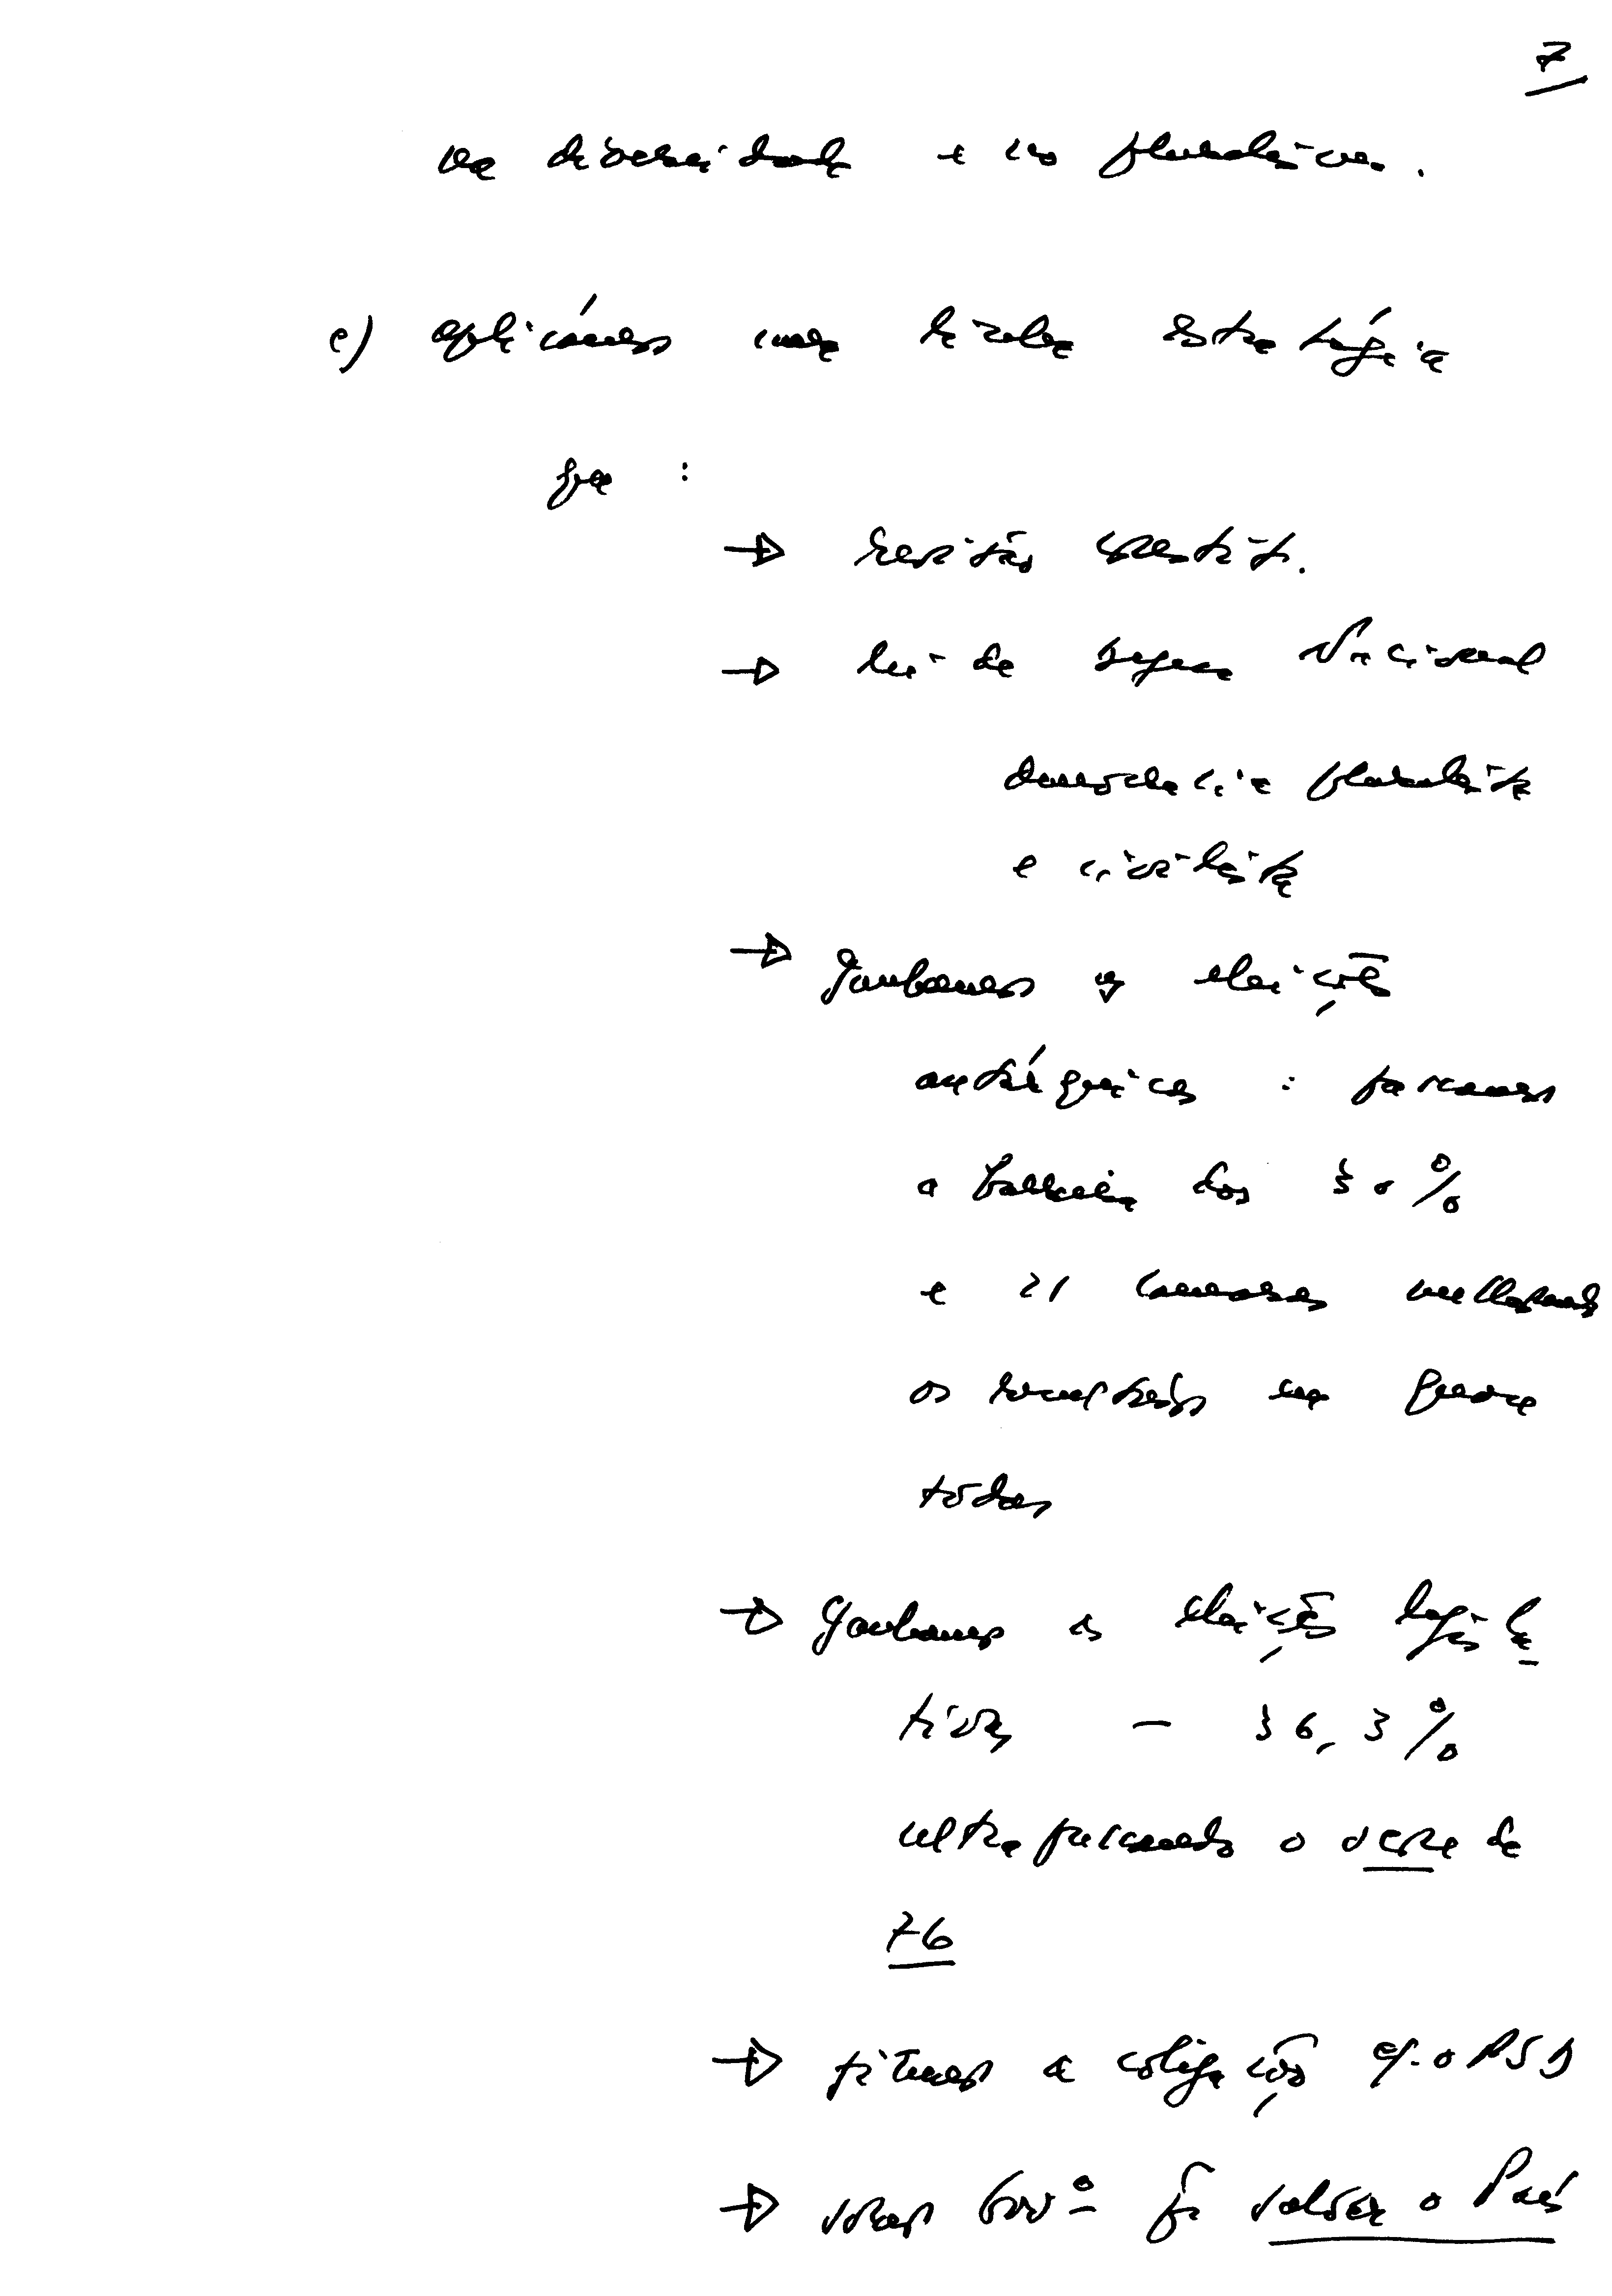 7
na diversidade e no pluralismo.
e) aplicámos uma tripla estratégia
que :
→ revisão constit.
→ lei de defesa Nacional
democracia pluralista
e civilista
→ ganhamos as eleições
autárquicas : passamos
a barreira dos 30%
e 21 camaras melhorando
os resultados em quase
todas
→ ganhamos as eleições legisla
tivas — 36,3%
ultrapassando o score de
76
→ fizemos a coligação c/ o PSD
→ Gov.º p. salvar o País